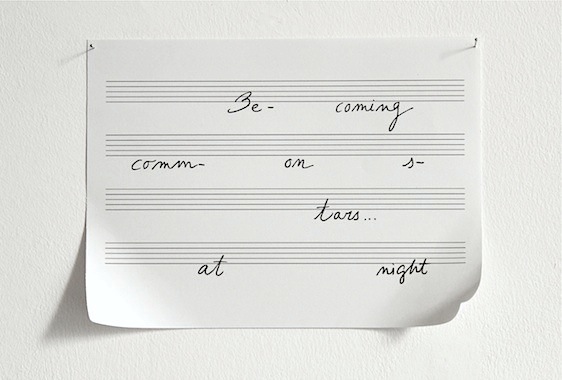 Be- coming
comm- on s-
tars...
at night